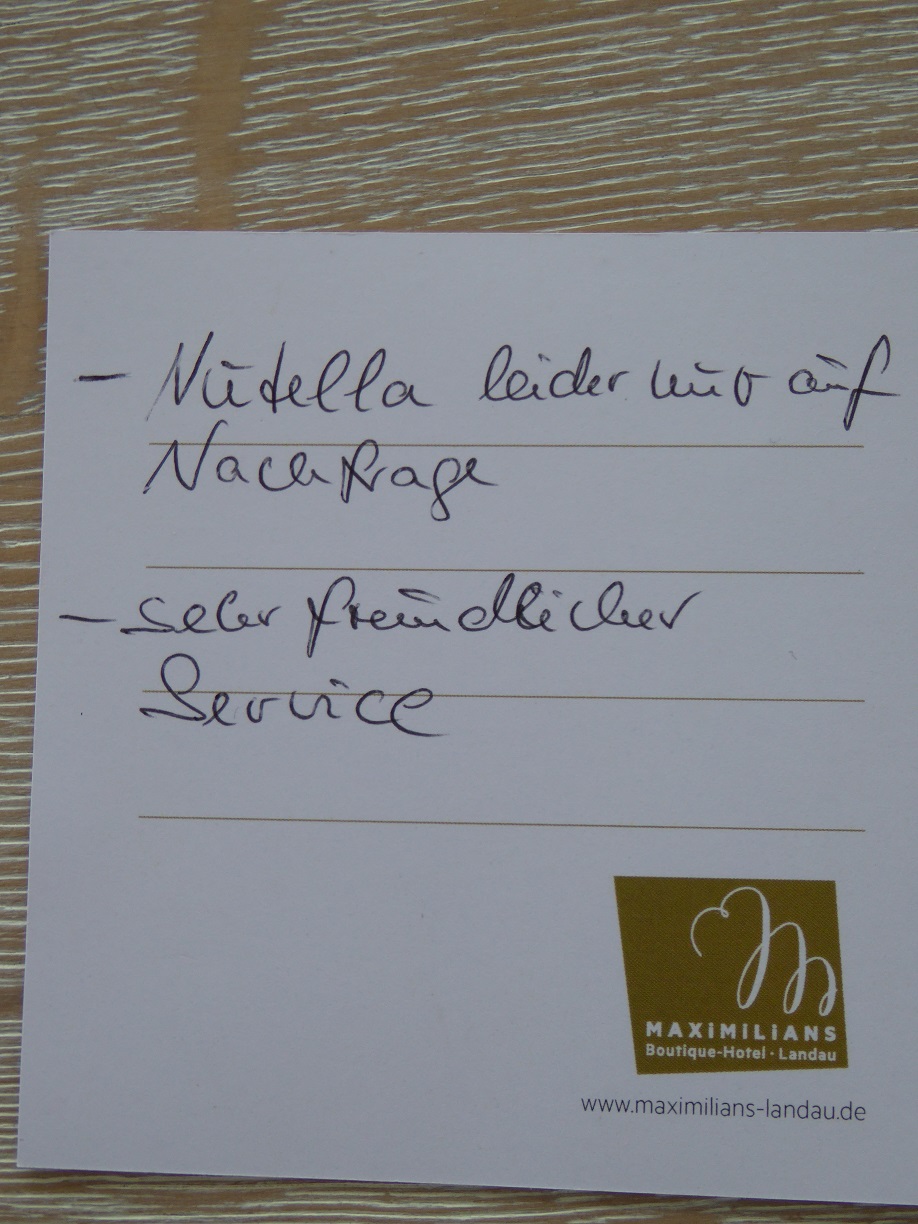 - Nutella leider nur auf
Nachfrage
- sehr freundlicher
Service
MAXiMiLiANS
Boutique-Hotel · Landau
www.maximilians-landau.de